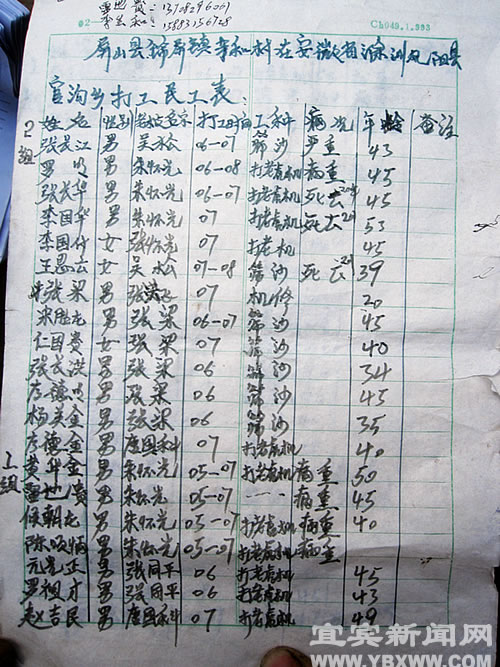 13708296001
李金和: 15883156728
02— Ch049.1.993
屏山县锦屏镇幸和村在安徽省滁州凤阳县
官沟乡打工民工表:
姓名 性别 老板名字 打工时间 工种 病况 年龄 备注
2组
张长江 男 吴松 06-07 筛沙 严重 43
罗 男 朱怀光 06-08 打老虎机 病重 45
张长华 男 朱怀光 06-07 打老虎机 死去 45
李国华 男 朱怀光 07 打老虎机 死去 53
李国付 女 张怀光 07 打老机 45
王恩云 女 吴松 07-08 筛沙 死去 39
张梁 男 07 机修 20
宋胜龙 男 张梁 06-07 筛沙 45
仁国贵 女 张梁 07 筛沙 40
张长洪 男 张梁 06 筛沙 34
德 男 张梁 06 筛沙 45
杨关金 男 张梁 06 筛沙 35
德金 男 唐国科 07 打老虎机 40
1组
黄华金 男 朱怀光 05-07 打老虎机 病重 50
世贵 男 朱怀光 05-07 ---- 病重 45
侯朝龙 男 朱怀光 05-07 打老虎机 病重 40
陈 男 朱怀光 05-07 打老虎机 病重
元 正 男 张同平 06 打老虎机 45
罗祖才 男 张国平 06 打老虎机 43
赵吉民 男 唐国科 07 打老虎机 49
宜宾新闻网
WWW.YBXWW.COM